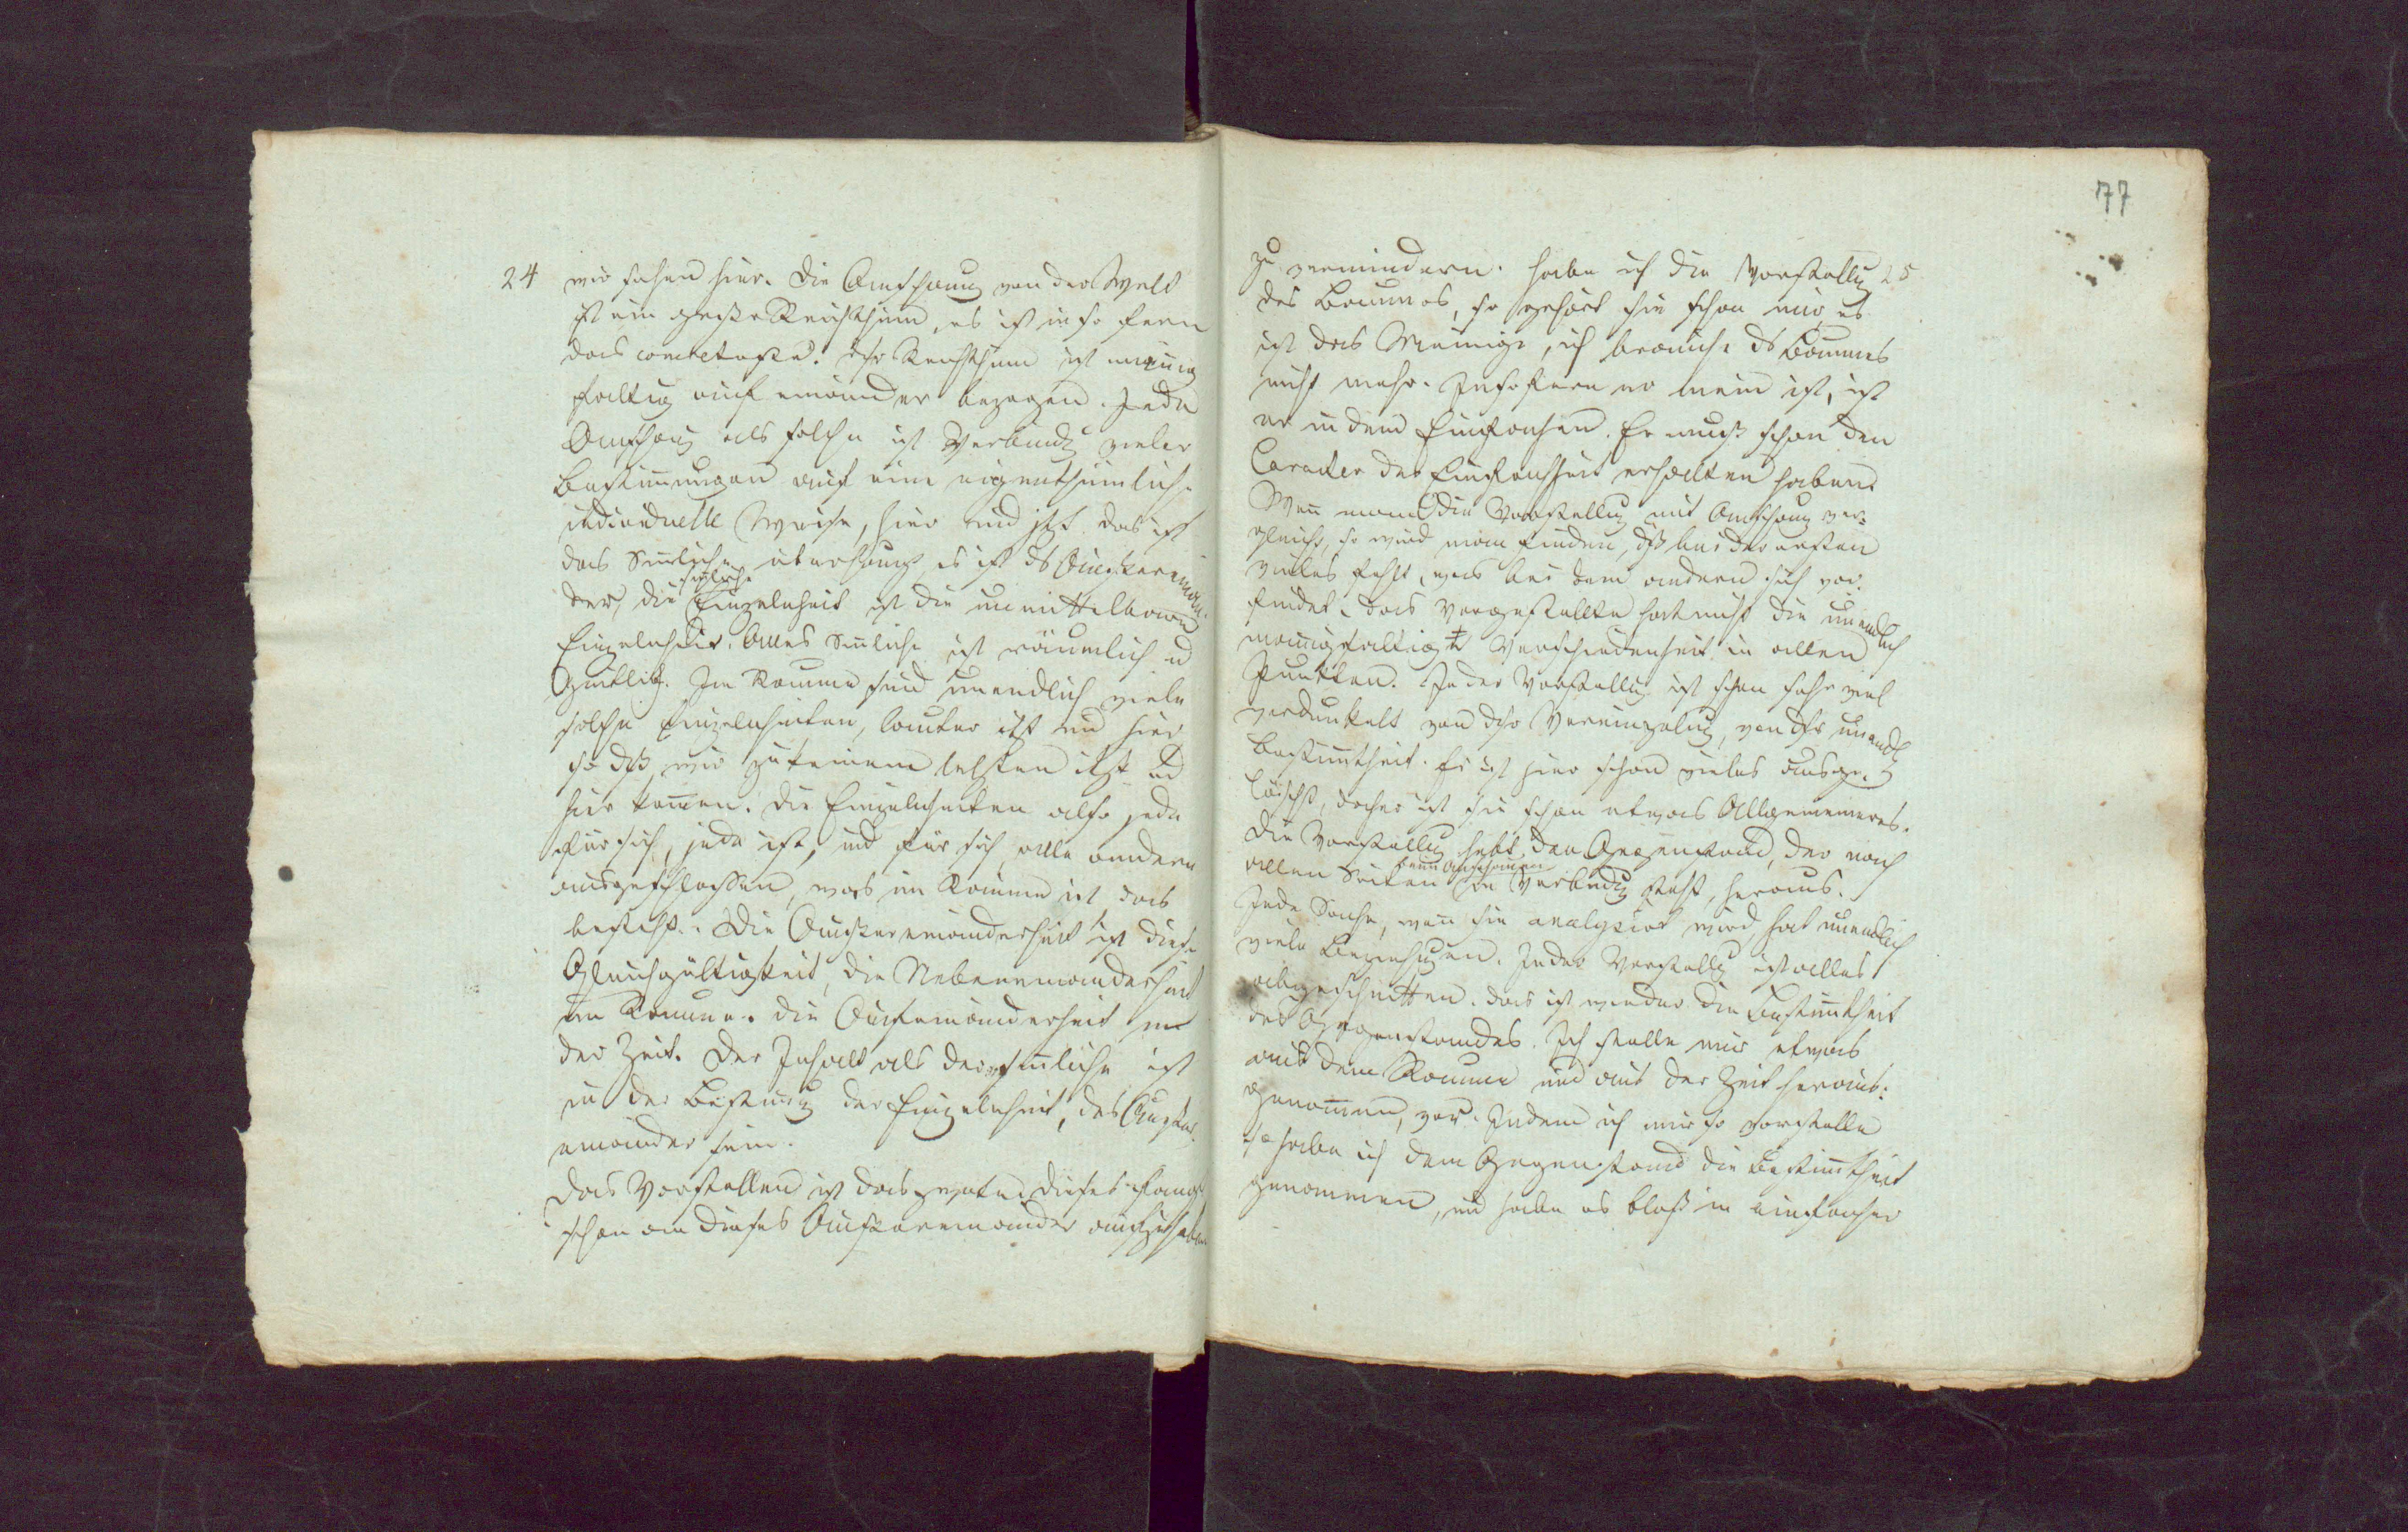 24
wir sehen hier. Die Anschauung von der Welt
ist ein grosser Reichthum, es ist in so fern
das concreteste. Ihr Reichthum ist mannig
faltig auf einander bezogen. Jede
Anschaug als solche ist Verbindg vieler
Bestimmungen auf eine eigenthümliche
individuelle Weise, hier und jetzt das ist
das Sinliche überhaupt es ist ds Aussereinan-
der, die sinliche Einzelnheit ist die unmittelbare
Einzelnheit. Alles Sinliche ist räumlich und
Zeitlich. Im Raume sind unendlich viele
solche Einzelnheiten, lauter itzt und hier
so dß wir zu keinem letzten itzt und
hier komen. Die Einzelnheiten also jede
für sich, jede ist, und für sich, alle andern
ausgeschlossen, was im Raume ist das
besteht. Die Aussereinanderheit ist diese
Gleichgültigkeit, die Nebeneinanderheit
im Raume. Die Aufeinanderheit in
der Zeit. Der Inhalt als der sinliche ist
in der Bestimg der Einzelnheit, des Ausser
einander sein.
Das Vorstellen ist das zweite. Dieses fängt
schon an dieses Aussereinander aufzuheben
77
zu vermindern. Habe ich die Vorstellug 25
des Baumes, so gehört sie schon mir es
ist das Meinige, ich brauche ds Baumes
nicht mehr. Insofern er mein ist, ist
er in dem Einfachen. Er muß schon den
Caracter der Einfachheit erhalten haben.
Wenn man die Vorstellug mit Anschaug ver-
gleicht, so wird man finden, dß bei der ersten
vieles fehlt, was bei dem andern sich vor-
findet. Das Vorgestellte hat nicht die unendlich
mannigfaltigste Verschiedenheit in allen
Punkten. In der Vorstellug ist schon sehr viel
verdunkelt von dsr Vereinzelug, von dsr unendl
Bestimtheit. Es ist hier schon vieles ausge-
löscht, daher ist sie schon etwas Allgemeineres.
Die Vorstellug hebt den Gegenstand, der nach
allen Seiten beim Anschauen in Verbindg steht, heraus.
Jede Sache, wenn sie analysirt wird hat unendlich
viele Beziehugen. In der Vorstellg ist alles
abgeschnitten. das ist wieder die Bestimtheit
des Gegenstandes. Ich stelle mir etwas
aus dem Raume und aus der Zeit heraus-
genommen, vor. Indem ich mir so vorstelle
so habe ich dem Gegenstand die Bestimtheit
genommen, und habe es bloß in einfacher